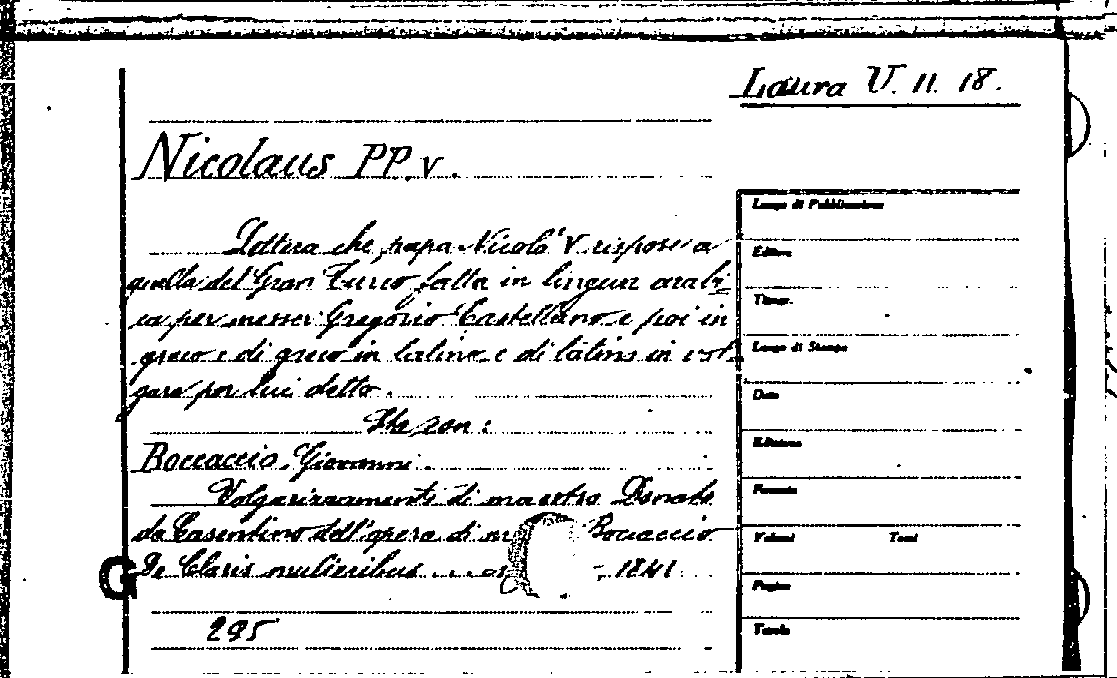 Laura V. 11. 18.
Nicolaus PP. V.
Lettera che papa Nicolò V rispose a
quella del Gran Turco fatta in lingua arabi-
ca per messer Gregorio Castellano e poi in
greco e di greco in latino e di latino in vol-
gare per lui detto.
Sta con:
Boccaccio, Giovanni.
Volgarizzamento di maestro Donato
da Casentino dell'opera di m Boccaccio
De Claris mulieribus . . . - 1841
295
Luogo di Pubblicazione
Editore
Tipogr.
Luogo di Stampa
Data
Edizione
Formato
Volumi Tomi
Pagine
Tavole
G